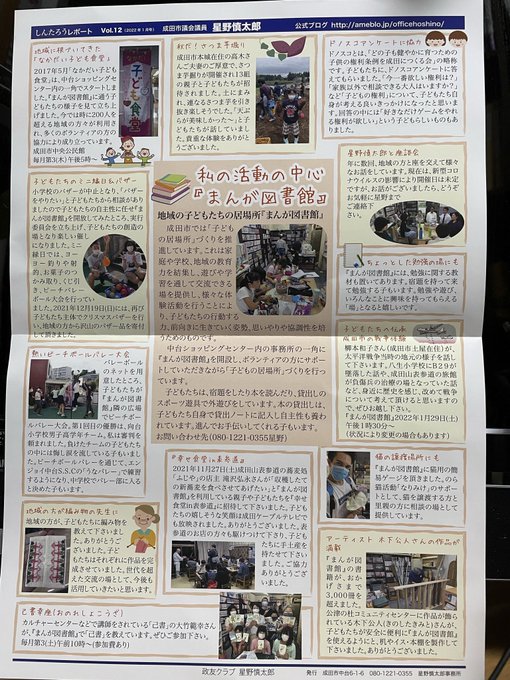 しんたろうレポート Vol.12(2022年1月号) 成田市議会議員 星野慎太郎 公式ブログ http://ameblo.jp/officehoshino/
地域に根づいてきた
「なかだい子ども食堂」
2017年5月「なかだい子ども
食堂」は、中台ショッピングセ
ンター内の一角でスタートしま
した。『まんが図書館』に通う子
どもたちの様子を見て立ち上げ
ました。今では時に200人を
超える地域の方々が利用さ
れ、多くのボランティアの方の
協力により成り立っています。
成田市中央公民館
毎月第3(木)午後5時〜
子ども食堂
秋だ!さつま芋堀り
成田市本城在住の高木
さんご夫妻のご厚意でさつ
ま芋掘りが開催され13組
の親子と子どもたちが招
待されました。土にまみ
れ、連なるさつま芋を引き
抜き楽しそうでした。「天ぷ
らが美味しかった〜」と子
どもたちが話していまし
た。貴重な体験をありがと
うございました。
ドノスコアンケートに協力
ドノスコとは「どの子も健やかに育つための
子供の権利条例を成田につくる会」の略称
です。子どもたちに、ドノスコアンケートに答
えてもらいました。「今一番欲しい権利は?」
「家族以外で相談できる大人はいますか?」
など「子どもの権利」について、子どもたち自
身が考える良いきっかけになったと思いま
す。回答の中には「好きなだけゲームをやれ
る権利が欲しい」という子どもらしいものもあ
りました。
星野慎太郎と座談会
年に数回、地域の方と座を交えて様々
なお話をしています。現在は、新型コロ
ナウイルスの影響により開催日は未定
ですが、お話がございましたら、どうぞ
お気軽に星野まで
ご連絡下さ
い。
私の活動の中心
『まんが図書館』
地域の子どもたちの居場所『まんが図書館』
成田市では「子ども
の居場所」づくりを推
進しています。これは家
庭や学校、地域の教育
力を結集し、遊びや学
習を通して交流できる
場を提供し、様々な体
験活動を行うことによ
り、子どもたちの行動する
力、前向きに生きていく姿勢、思いやりや協調性を培
うためのものです。
中台ショッピングセンター内の事務所の一角に
『まんが図書館』を開設し、ボランティアの方にサポー
トしていただきながら「子どもの居場所」づくりを行っ
ています。
子どもたちは、宿題をしたり本を読んだり、貸出しの
スポーツ遊具で外遊びをしています。本の貸出しは、
子どもたち自身で貸出ノートに記入し自主性も養わ
れています。進んでお手伝いしてくれる子もいます。
お問い合わせ先(080-1221-0355星野)
子どもたちのミニ縁日&バザー
小学校のバザーが中止となり、「バザー
をやりたい」と子どもたちから相談があり
ましたので子どもたちの自主性に任せ『ま
んが図書館』を開放してみたところ、実行
委員会を立ち上げ、子どもたちの創造の
場となり楽しい催し
になりました。ミニ
縁日では、ヨー
ヨー釣りや射
的、お菓子のつ
かみ取り、くじ引
き、ビーチバレー
ボール大会を行ってい
ました。2021年12月19日(日)には、再び
子どもたち主体でクリスマスバザーを行
い、地域の方から沢山のバザー品を寄付
して頂きました。
ちょっとした勉強の場にも
『まんが図書館』には、勉強に関する教
材も置いてあります。宿題を持って来て
勉強する子もいます。勉強や遊び、
いろんなことに興味を持ってもらえる「場」
となると嬉しいです。
子どもたちへ伝承
成田市の戦争体験
柳本和子さん(成田市土屋在住)が、
太平洋戦争当時の地元の様子を話し
て下さいます。八生小学校にB29が
墜落した話や、成田山表参道の旅館
が負傷兵の治療の場となっていた話
など、身近に歴史を感じ、改めて戦争
について考えて頂けると思いますの
で、ぜひお越し下さい。
『まんが図書館』2022年1月29日(土)
午後1時30分〜
(状況により変更の場合もあります)
熱いビーチボールバレー大会
バレーボール
のネットを用
意したところ、
子どもたちが
『まんが図書
館』隣の広場
でビーチボー
ルバレー大会。第1回目の優勝は、向台
小学校男子高学年チーム。私は審判を
頼まれました。負けたチームの子どもたち
の中には悔し涙を流している子もいまし
た。ビーチボールバレーを通して、エン
ジョイ中台S.S.Cの「うなバレー」で練習
するようになり、中学校でバレー部に入る
と決めた子もいます。
『幸せ食堂in表参道』
2021年11月27日(土)成田山表参道の蕎麦処
「ふじや」の店主 滝沢弘永さんが「収穫したて
の新蕎麦を食べさせてあげたい」と『まんが図書
館』を利用している親子や子どもたちを『幸せ
食堂in表参道』に招待して下さいました。子ども
たちの嬉しそうな笑顔は成田ケーブルテレビで
も放映されました。ありがとうございました。表
参道のお店の方々も駆けつけて下さり、子どもた
ちに手土産を
持たせて下さい
ました。ご協力
ありがとうござ
いました。
猫の譲渡場所にも
『まんが図書館』に猫用の簡
易ゲージを頂きました。のら
猫活動「なりみけ」のサポー
トとして、猫を譲渡する方と
里親の方に相談の場として
提供しています。
地域の方が編み物の先生に
地域の方が、子どもたちに編み物
を教えて下さいまし
た。ありがとうござ
いました。子どもた
ちはそれぞれに作品を完
成させていました。世代を超
えた交流の場として、今後も
活用していきたいと思います。
アーティスト 木下公人さんの作品が
満載
『まんが図書館』
の書籍が、おか
げさまで
3,000冊を
超えました。
公津の杜コミュニティセンターに作品が飾られ
ている木下公人(きのしたきみと)さんが、子
どもたちが安全に便利に『まんが図書館』を使
えるようにと、机やイス・本棚を製作して下さ
いました。ありがとうございました。
己書幸座(おのれしょこうざ)
カルチャーセンターなどで講師をされている「己書」の大竹範幸さん
が、『まんが図書館』で「己書」を教えています。ぜひご参加下さい。
毎月第3(土)午前10時〜(参加費あり)
政友クラブ 星野慎太郎
発行 成田市中台6-1-6 080-1221-0355 星野慎太郎事務所